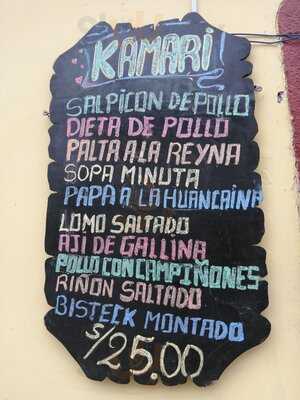 KAMARI!
SALPICON DE POLLO
DIETA DE POLLO
PALTA A LA REYNA
SOPA MINUTA
PAPA A LA HUANCAINA
LOMO SALTADO
AJI DE GALLINA
POLLO CON CAMPIÑONES
RIÑON SALTADO
BISTECK MONTADO
S/25.00